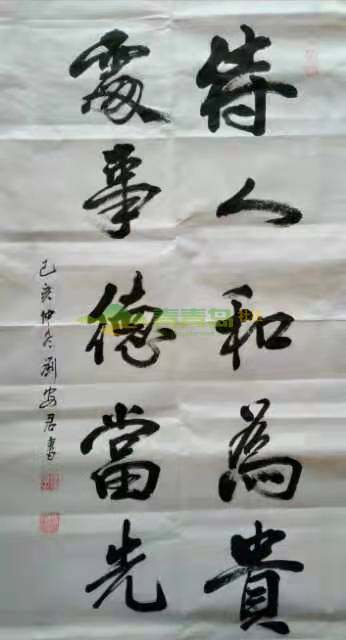 待人和為貴
處事德當先
己亥仲冬劉安君書